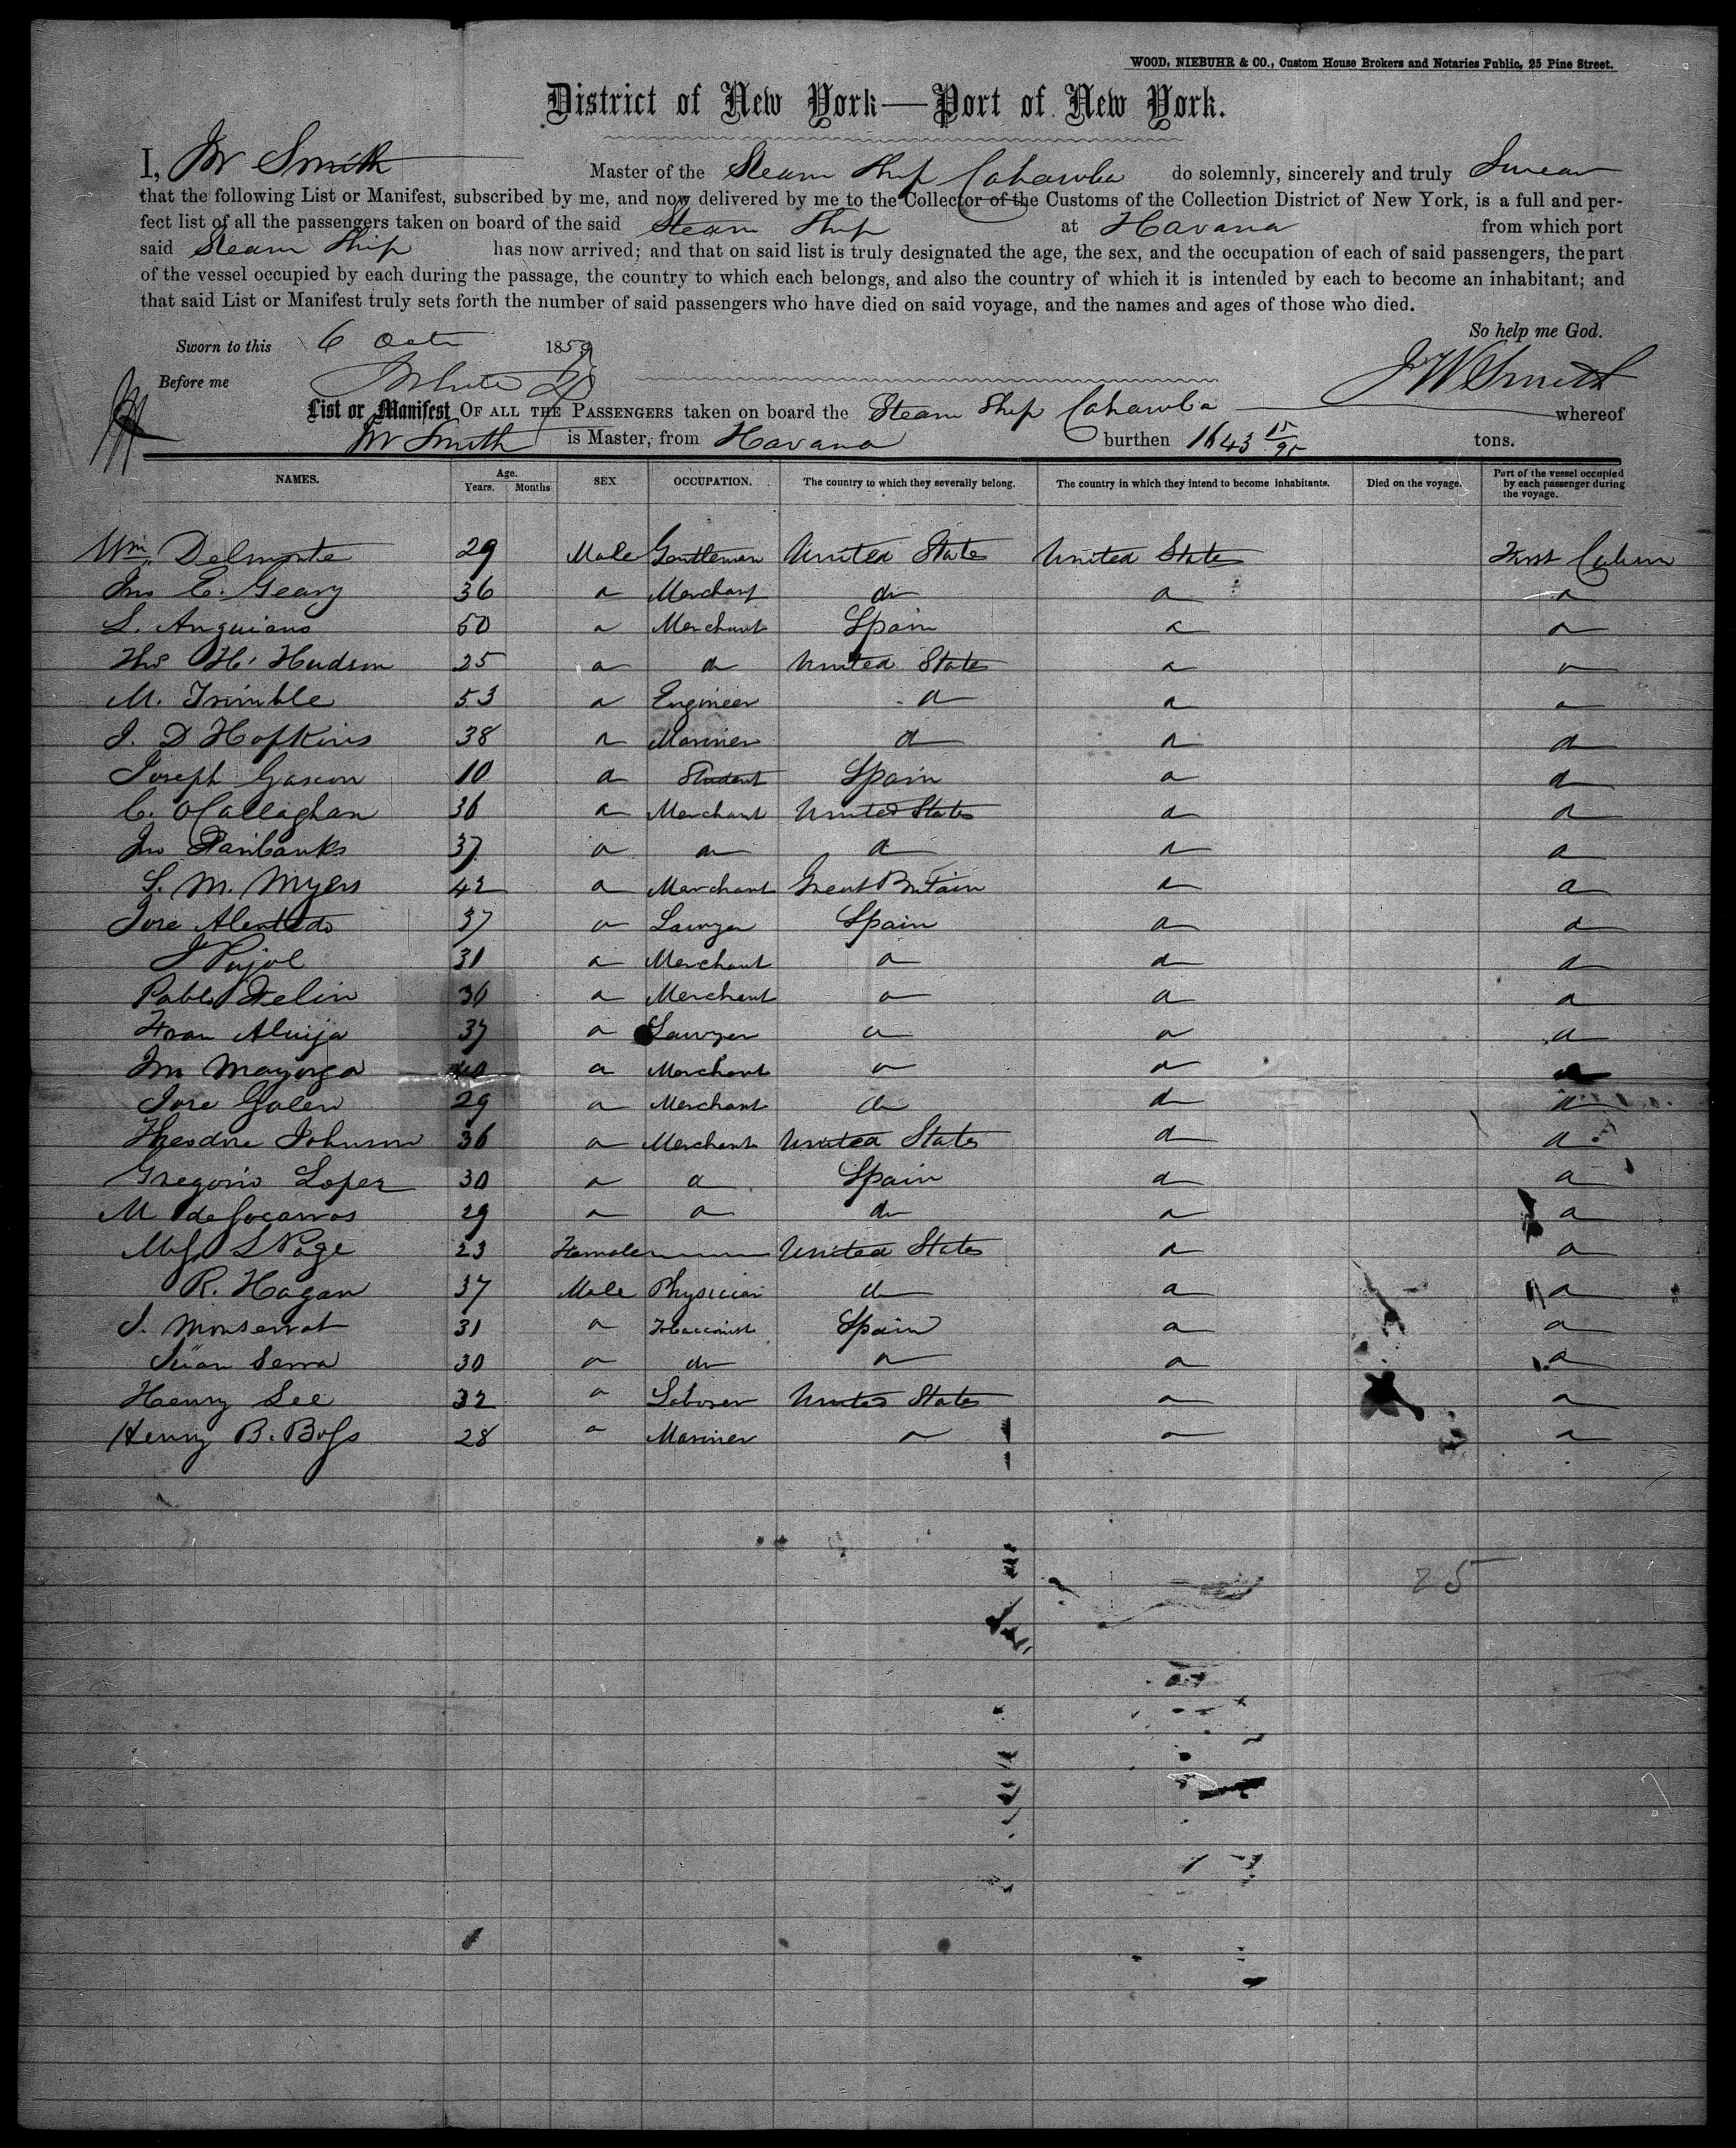 WOOD, NIEBUHR & CO., Custom House Brokers and Notaries Public, 25 Pine Street.
District of New York—Port of New York.
I, JW Smith Master of the Steam Ship Cahawba do solemnly, sincerely and truly Swear
that the following List or Manifest, subscribed by me, and now delivered by me to the Collector of the Customs of the Collection District of New York, is a full and per-
fect list of all the passengers taken on board of the said Steam Ship at Havana from which port
said Steam Ship has now arrived; and that on said list is truly designated the age, the sex, and the occupation of each of said passengers, the part
of the vessel occupied by each during the passage, the country to which each belongs, and also the country of which it is intended by each to become an inhabitant; and
that said List or Manifest truly sets forth the number of said passengers who have died on said voyage, and the names and ages of those who died.
So help me God.
Sworn to this 6 Octr 1859
Before me JW Smith
List or Manifest OF ALL THE PASSENGERS taken on board the Steam Ship Cahawba whereof
JW Smith is Master, from Havana burthen 1643 15/95 tons.
NAMES. Age. Years. Months SEX OCCUPATION. The country to which they severally belong. The country in which they intend to become inhabitants. Died on the voyage. Part of the vessel occupied by each passenger during the voyage.
Wm Delmonte 29 Male Gentleman United States United States First Cabin
Jno C. Geary 36 do Merchant do do do
L. Anguiano 50 do Merchant Spain do do
Thos H. Hudson 25 do do United States do do
M. Trimble 53 do Engineer do do do
J. D Hopkins 38 do Mariner do do do
Joseph Gascon 10 do Student Spain do do
C. O'Callaghan 36 do Merchant United States do do
Jno Fairbanks 37 do do do do do
S. M. Myers 42 do Merchant Great Britain do do
Jose 37 do Lawyer Spain do do
J Pujol 31 do Merchant do do do
Pablo Felin 36 do Merchant do do do
Fran Aluija 37 do Lawyer do do do
Jno Mayorga 40 do Merchant do do do
Jose Galen 29 do Merchant do do do
Theodore Johnson 36 do Merchant United States do do
Gregorio Lopez 30 do do Spain do do
M de Socarros 29 do do do do do
L Page 23 Female United States do do
R. Hagan 37 Male Physician do do do
J. Monserrat 31 do Tobacconist Spain do do
Juan Serra 30 do do do do do
Henry Lee 32 do Laborer United States do do
Henry B. Boss 28 do Mariner do do do
25